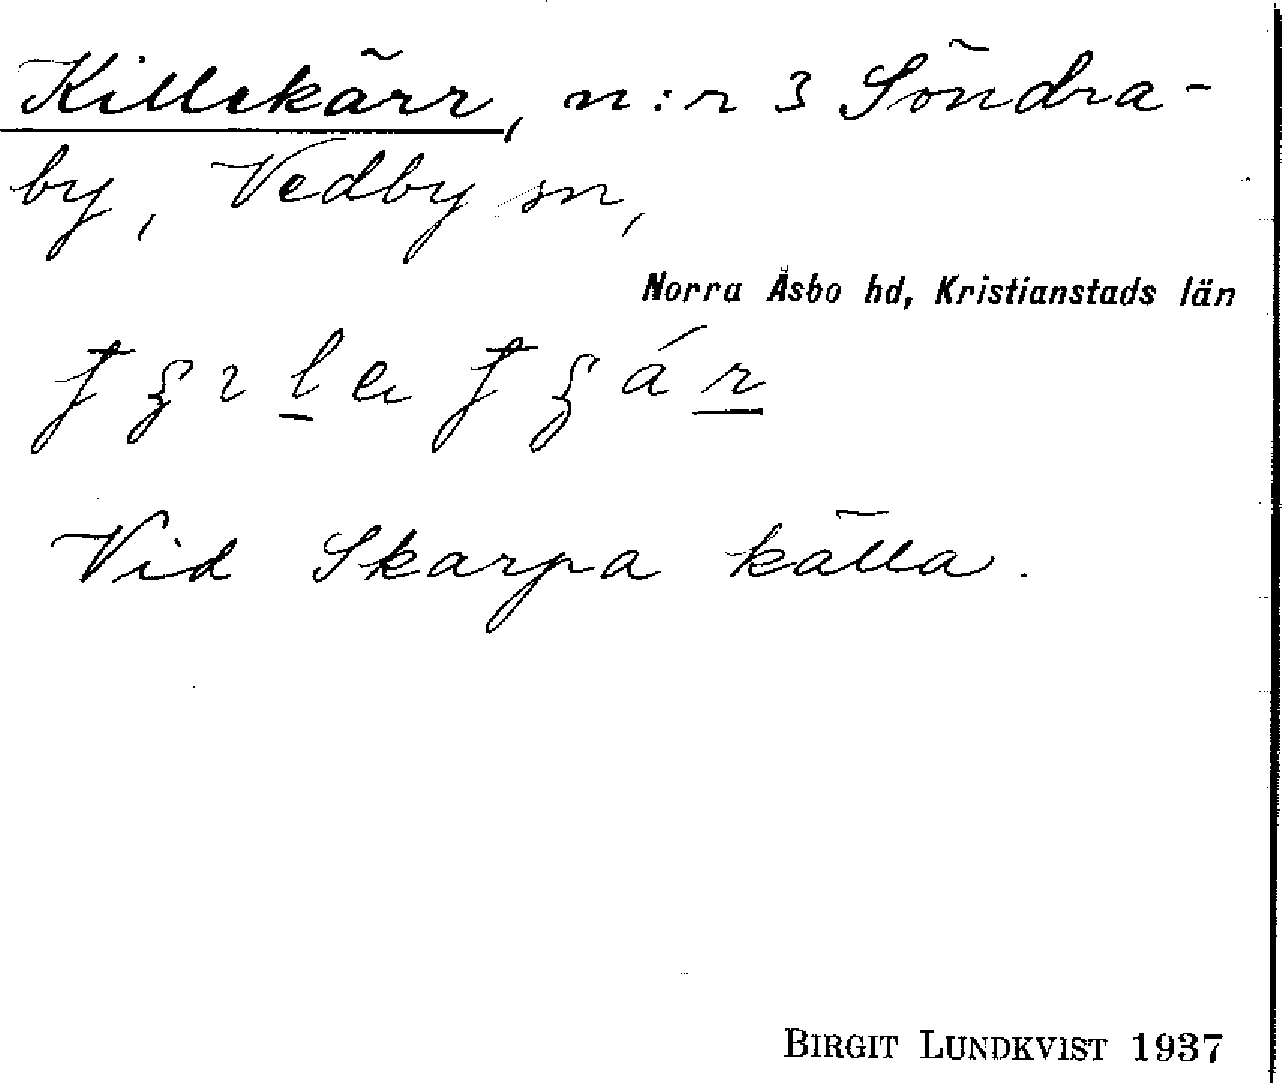 Killekärr, n:r 3 Söndra-
by, Vedby sn,
Norra Åsbo hd, Kristianstads län
Vid Skarpa källa.
BIRGIT LUNDKVIST 1937